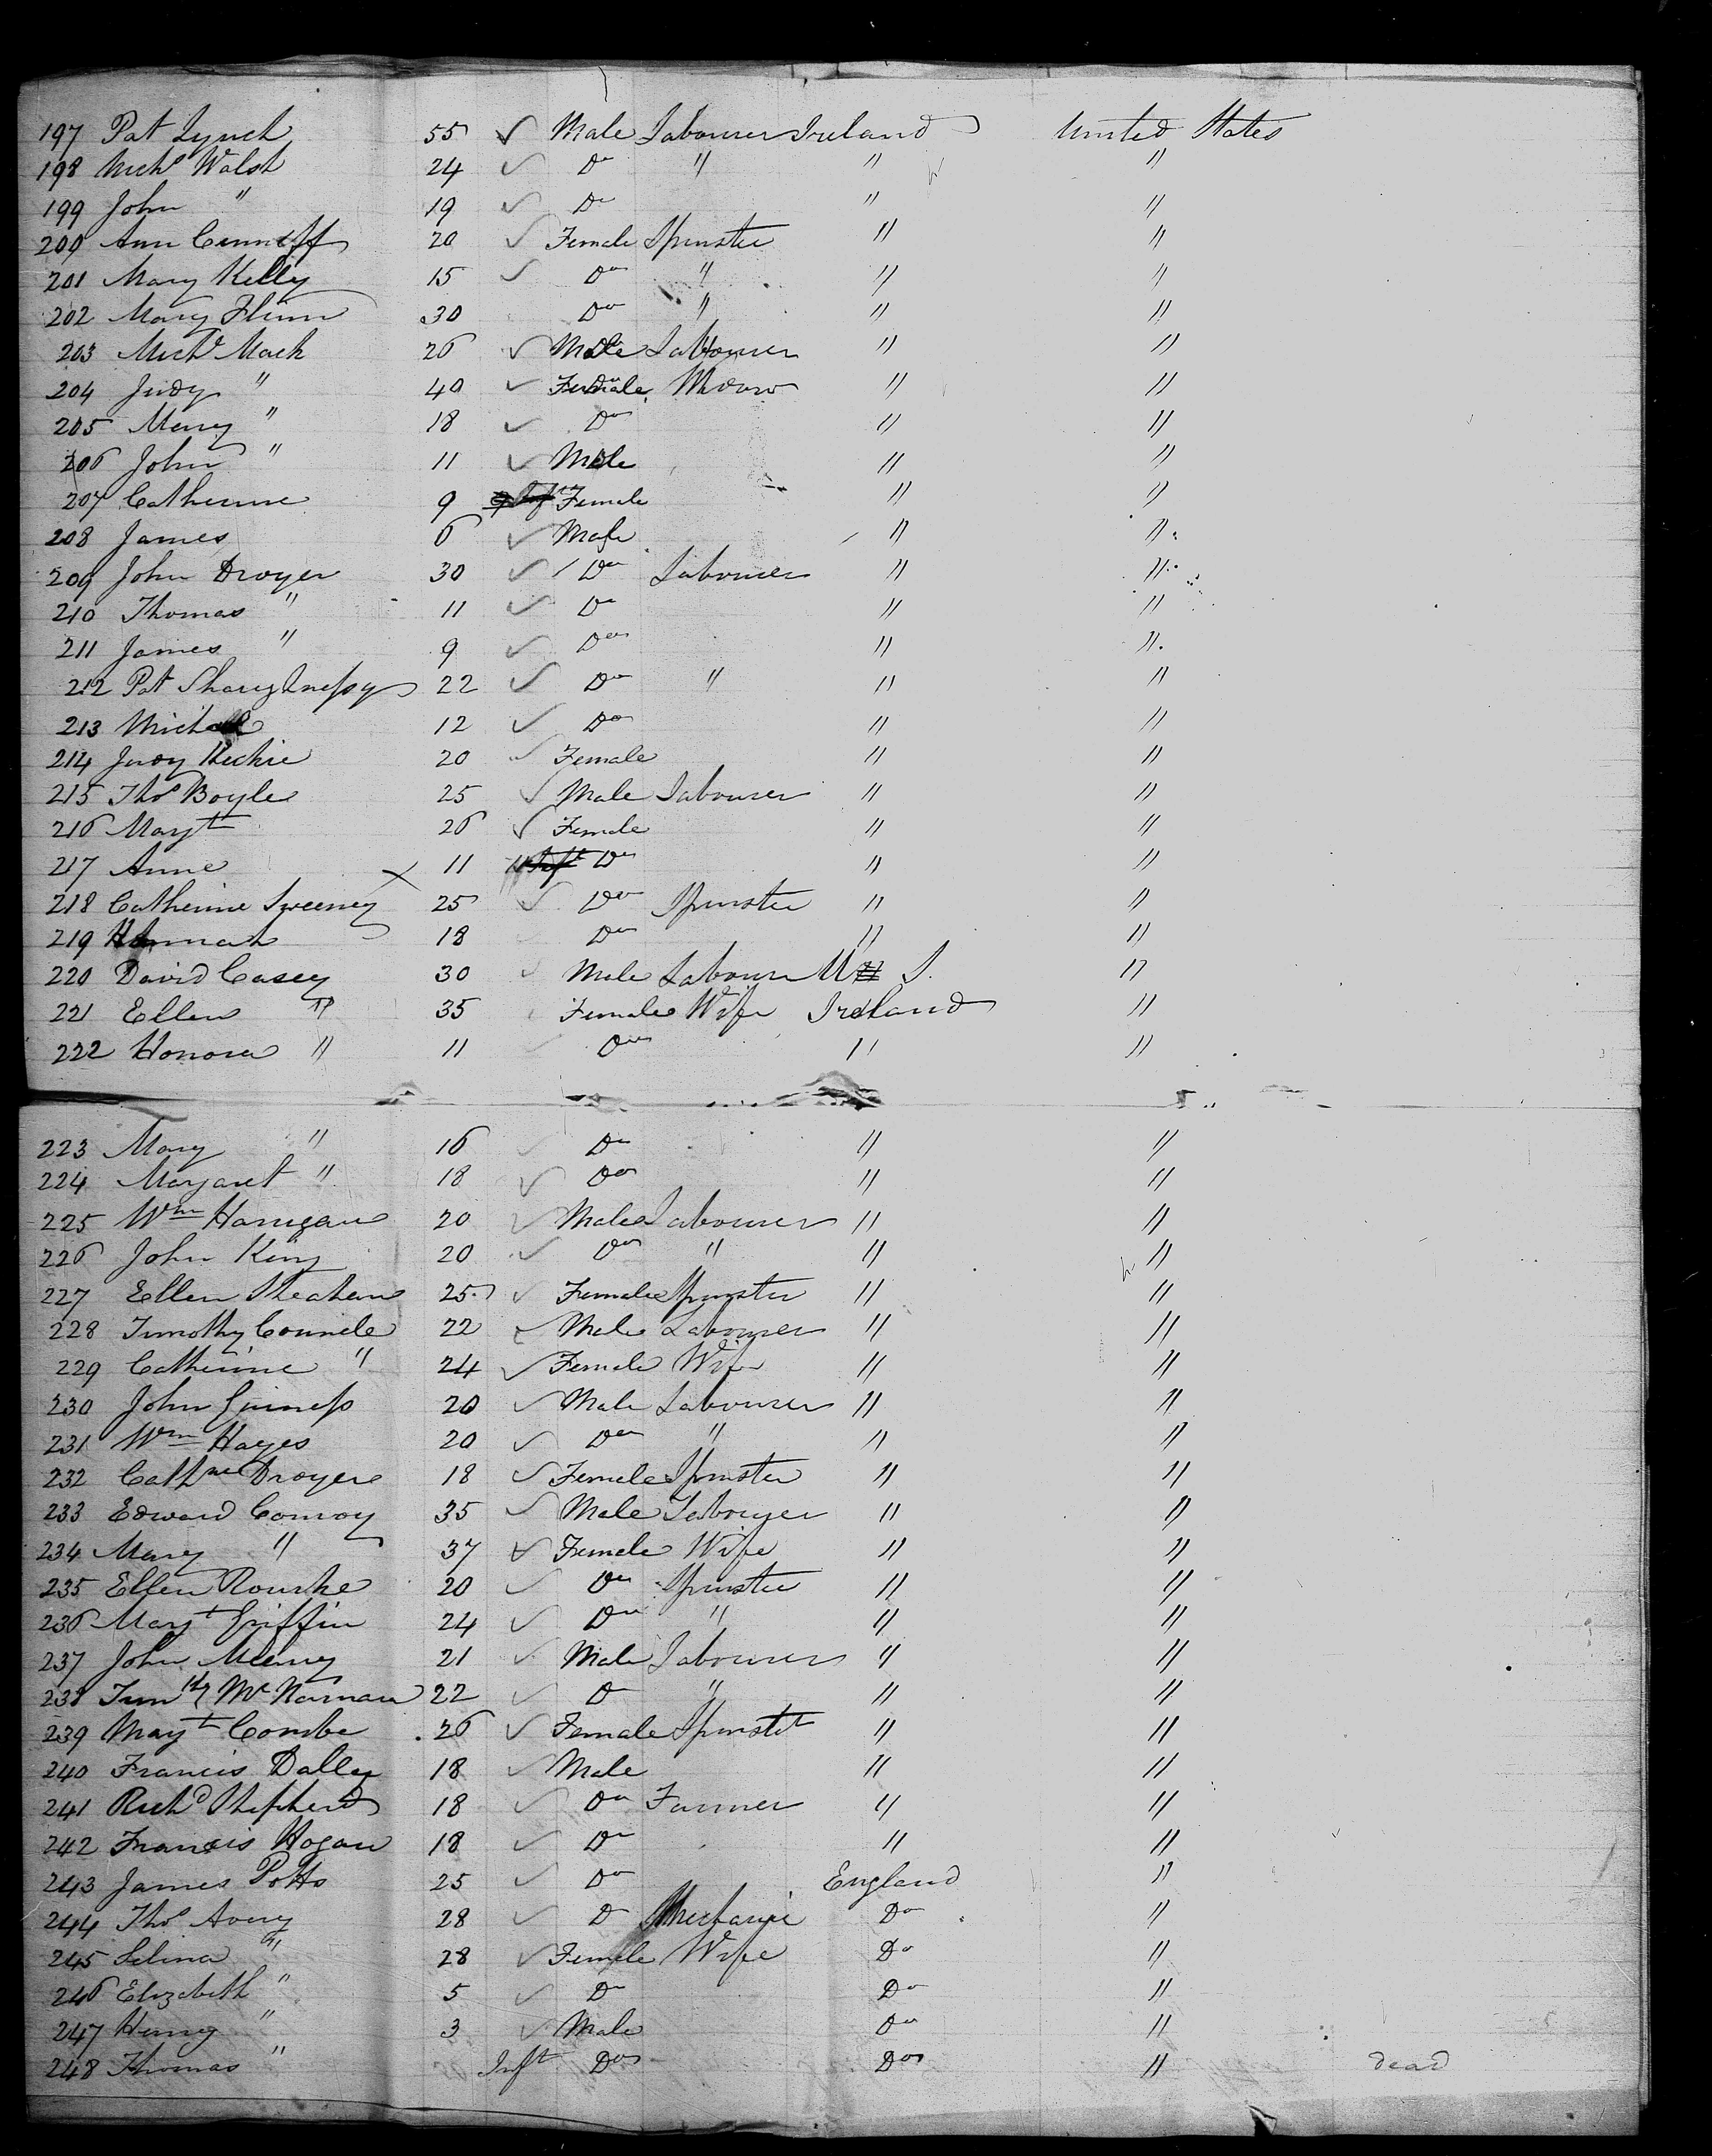 197 Pat Lynch 55 ✓ Male Labourer Ireland United States
198 Mich<sup>l</sup> Walsh 24 ✓ Do " " "
199 John " 19 ✓ Do " "
200 Ann Cunniff 20 ✓ Female Spinster " "
201 Mary Kelly 15 ✓ Do " " "
202 Mary Flinn 30 Do " " "
203 Mich<sup>l</sup> Mack 26 ✓ Male Labourer " "
204 Judy " 40 ✓ Female Widow " "
205 Mary " 18 ✓ Do " "
206 John " 11 ✓ Male " "
207 Catherine 9 Female " "
208 James 6 ✓ Male " "
209 John Droyer 30 ✓ Do Labourer " "
210 Thomas " 11 ✓ Do " "
211 James " 9 ✓ Do " "
212 Pat Shaughnessy 22 ✓ Do " " "
213 Michael 12 ✓ Do " "
214 Judy 20 ✓ Female " "
215 Thos Boyle 25 ✓ Male Labourer " "
216 Mayt 26 ✓ Female " "
217 Anne × 11 Do " "
218 Catherine Sweeney 25 ✓ Do Spinster " "
219 Hannah 18 Do " "
220 David Casey 30 ✓ Male Labourer U S. "
221 Ellen " 35 Female Wife Ireland "
222 Honora " 11 Do " "
223 Mary " 16 ✓ Do " "
224 Margaret " 18 ✓ Do " "
225 Wm Harrigan 20 ✓ Male Labourer " "
226 John King 20 ✓ Do " " "
227 Ellen 25 ✓ Female Spinster " "
228 Timothy 22 ✓ Male Labourer " "
229 Catherine " 24 ✓ Female Wife " "
230 John Guiness 20 ✓ Male Labourer " "
231 Wm Hayes 20 ✓ Do " " "
232 Cathne Droyer 18 ✓ Female Spinster " "
233 Edward Conroy 35 ✓ Male Labourer " "
234 Mary " 37 ✓ Female Wife " "
235 Ellen Rourke 20 ✓ Do Spinster " "
236 Mart Griffin 24 ✓ Do " " "
237 John 21 ✓ Male Labourer " "
238 Timthy McNamara 22 ✓ Do " " "
239 Mayt Combe 26 ✓ Female Spinstr " "
240 Francis Dalley 18 ✓ Male " "
241 Richd Shepherd 18 ✓ Do Farmer " "
242 Francis Hogan 18 ✓ Do " "
243 James Potts 25 ✓ Do England "
244 Thos Avery 28 ✓ Do Mechanic Do "
245 Selina " 28 ✓ Female Wife Do "
246 Elizabeth " 5 ✓ Do Do "
247 Henry " 3 ✓ Male Do "
248 Thomas " Inft Do Do " dead